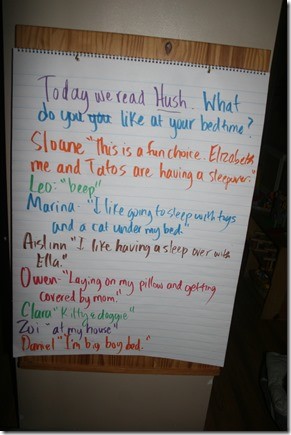 Today we read Hush. What
do you you like at your bedtime?
Sloane "This is a fun choice. Elizabeth
me and Tatos are having a sleepover."
Leo- "beep"
Marina- "I like going to sleep with toys
and a cat under my bed."
Aislinn "I like having a sleep over with
Ella."
Owen- "Laying on my pillow and getting
covered by mom."
Clara "Kitty & doggie"
Zoi - at my house"
Daniel "I'm big boy bed."